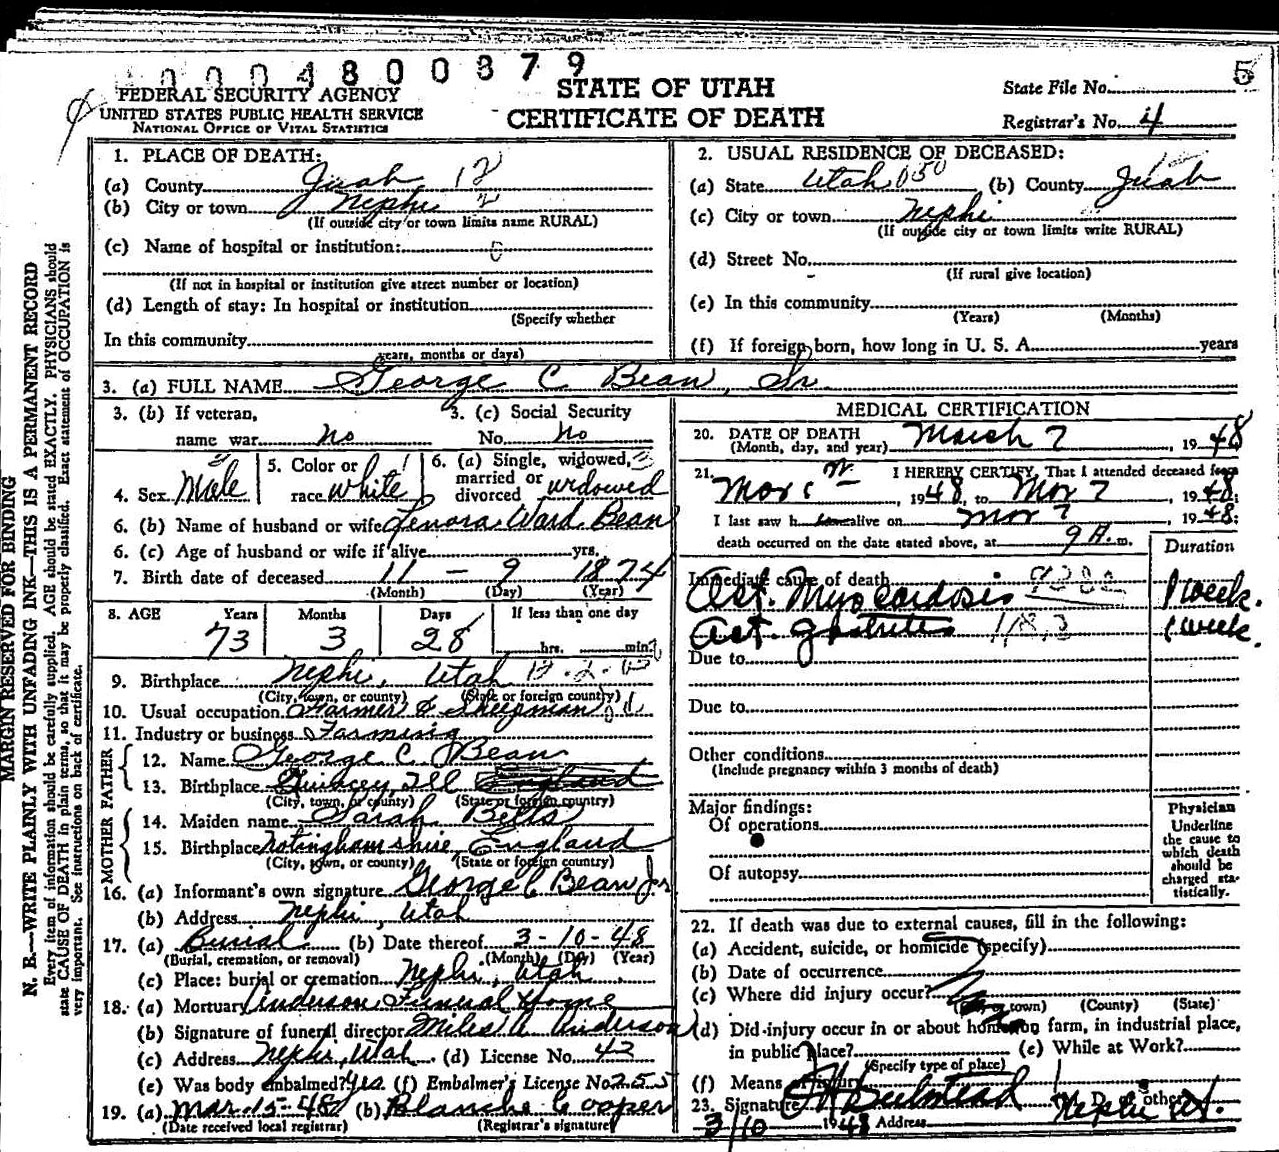 0004800879
5
FEDERAL SECURITY AGENCY
UNITED STATES PUBLIC HEALTH SERVICE
NATIONAL OFFICE OF VITAL STATISTICS
STATE OF UTAH
CERTIFICATE OF DEATH
State File No.
Registrar's No. 4
MARGIN RESERVED FOR BINDING
N. B.—WRITE PLAINLY WITH UNFADING INK—THIS IS A PERMANENT RECORD
Every item of information should be carefully supplied. AGE should be stated EXACTLY. PHYSICIANS should
state CAUSE OF DEATH in plain terms, so that it may be properly classified. Exact statement of OCCUPATION is
very important. See instructions on back of certificate.
1. PLACE OF DEATH:
(a) County Juab 12
(b) City or town Nephi 2
(If outside city or town limits name RURAL)
(c) Name of hospital or institution: 0
(If not in hospital or institution give street number or location)
(d) Length of stay: In hospital or institution
(Specify whether
In this community
years, months or days)
2. USUAL RESIDENCE OF DECEASED:
(a) State Utah 050 (b) County Juab
(c) City or town Nephi
(If outside city or town limits write RURAL)
(d) Street No.
(If rural give location)
(e) In this community
(Years) (Months)
(f) If foreign born, how long in U. S. A. years
3. (a) FULL NAME George C Bean, Sr.
3. (b) If veteran,
name war no
3. (c) Social Security
No. no
4. Sex Male
5. Color or
race white
6. (a) Single, widowed,
married or
divorced widowed
6. (b) Name of husband or wife Lenora Ward Bean
6. (c) Age of husband or wife if alive yrs.
7. Birth date of deceased 11 - 9 1874
(Month) (Day) (Year)
8. AGE Years Months Days If less than one day
73 3 28 hrs. min.
9. Birthplace Nephi, Utah
(City, town, or county) (State or foreign country)
10. Usual occupation Farmer & Sheepman
11. Industry or business Farming
FATHER
12. Name George C Bean
13. Birthplace Quincey Ill England
(City, town, or county) (State or foreign country)
MOTHER
14. Maiden name Sarah Betts
15. Birthplace Notinghamshire England
(City, town, or county) (State or foreign country)
16. (a) Informant's own signature George C Bean Jr.
(b) Address Nephi, Utah
17. (a) Burial (b) Date thereof 3-10-48
(Burial, cremation, or removal) (Month) (Day) (Year)
(c) Place: burial or cremation Nephi, Utah
18. (a) Mortuary Anderson Funeral Home
(b) Signature of funeral director Miles A Anderson
(c) Address Nephi, Utah (d) License No. 42
(e) Was body embalmed? Yes (f) Embalmer's License No. 255
19. (a) Mar. 15-48 (b) Blanche Cooper
(Date received local registrar) (Registrar's signature)
MEDICAL CERTIFICATION
20. DATE OF DEATH
(Month, day, and year) March 7, 1948
21. I HEREBY CERTIFY, That I attended deceased from
Mar 1948, to Mar 7, 1948;
I last saw h alive on Mar 7, 1948;
death occurred on the date stated above, at 9 A. m.
Duration
Immediate cause of death
Act. Myocardosis 1 week.
Act. gastritis 1 week.
Due to
Due to
Other conditions
(Include pregnancy within 3 months of death)
Major findings:
Of operations
Of autopsy
Physician
Underline
the cause to
which death
should be
charged sta-
tistically.
22. If death was due to external causes, fill in the following:
(a) Accident, suicide, or homicide (specify)
(b) Date of occurrence
(c) Where did injury occur?
(City or town) (County) (State)
(d) Did injury occur in or about home, on farm, in industrial place,
in public place? (e) While at Work?
(Specify type of place)
(f) Means of injury
23. Signature M. D. or other
3/10 1948 Address Nephi Ut.